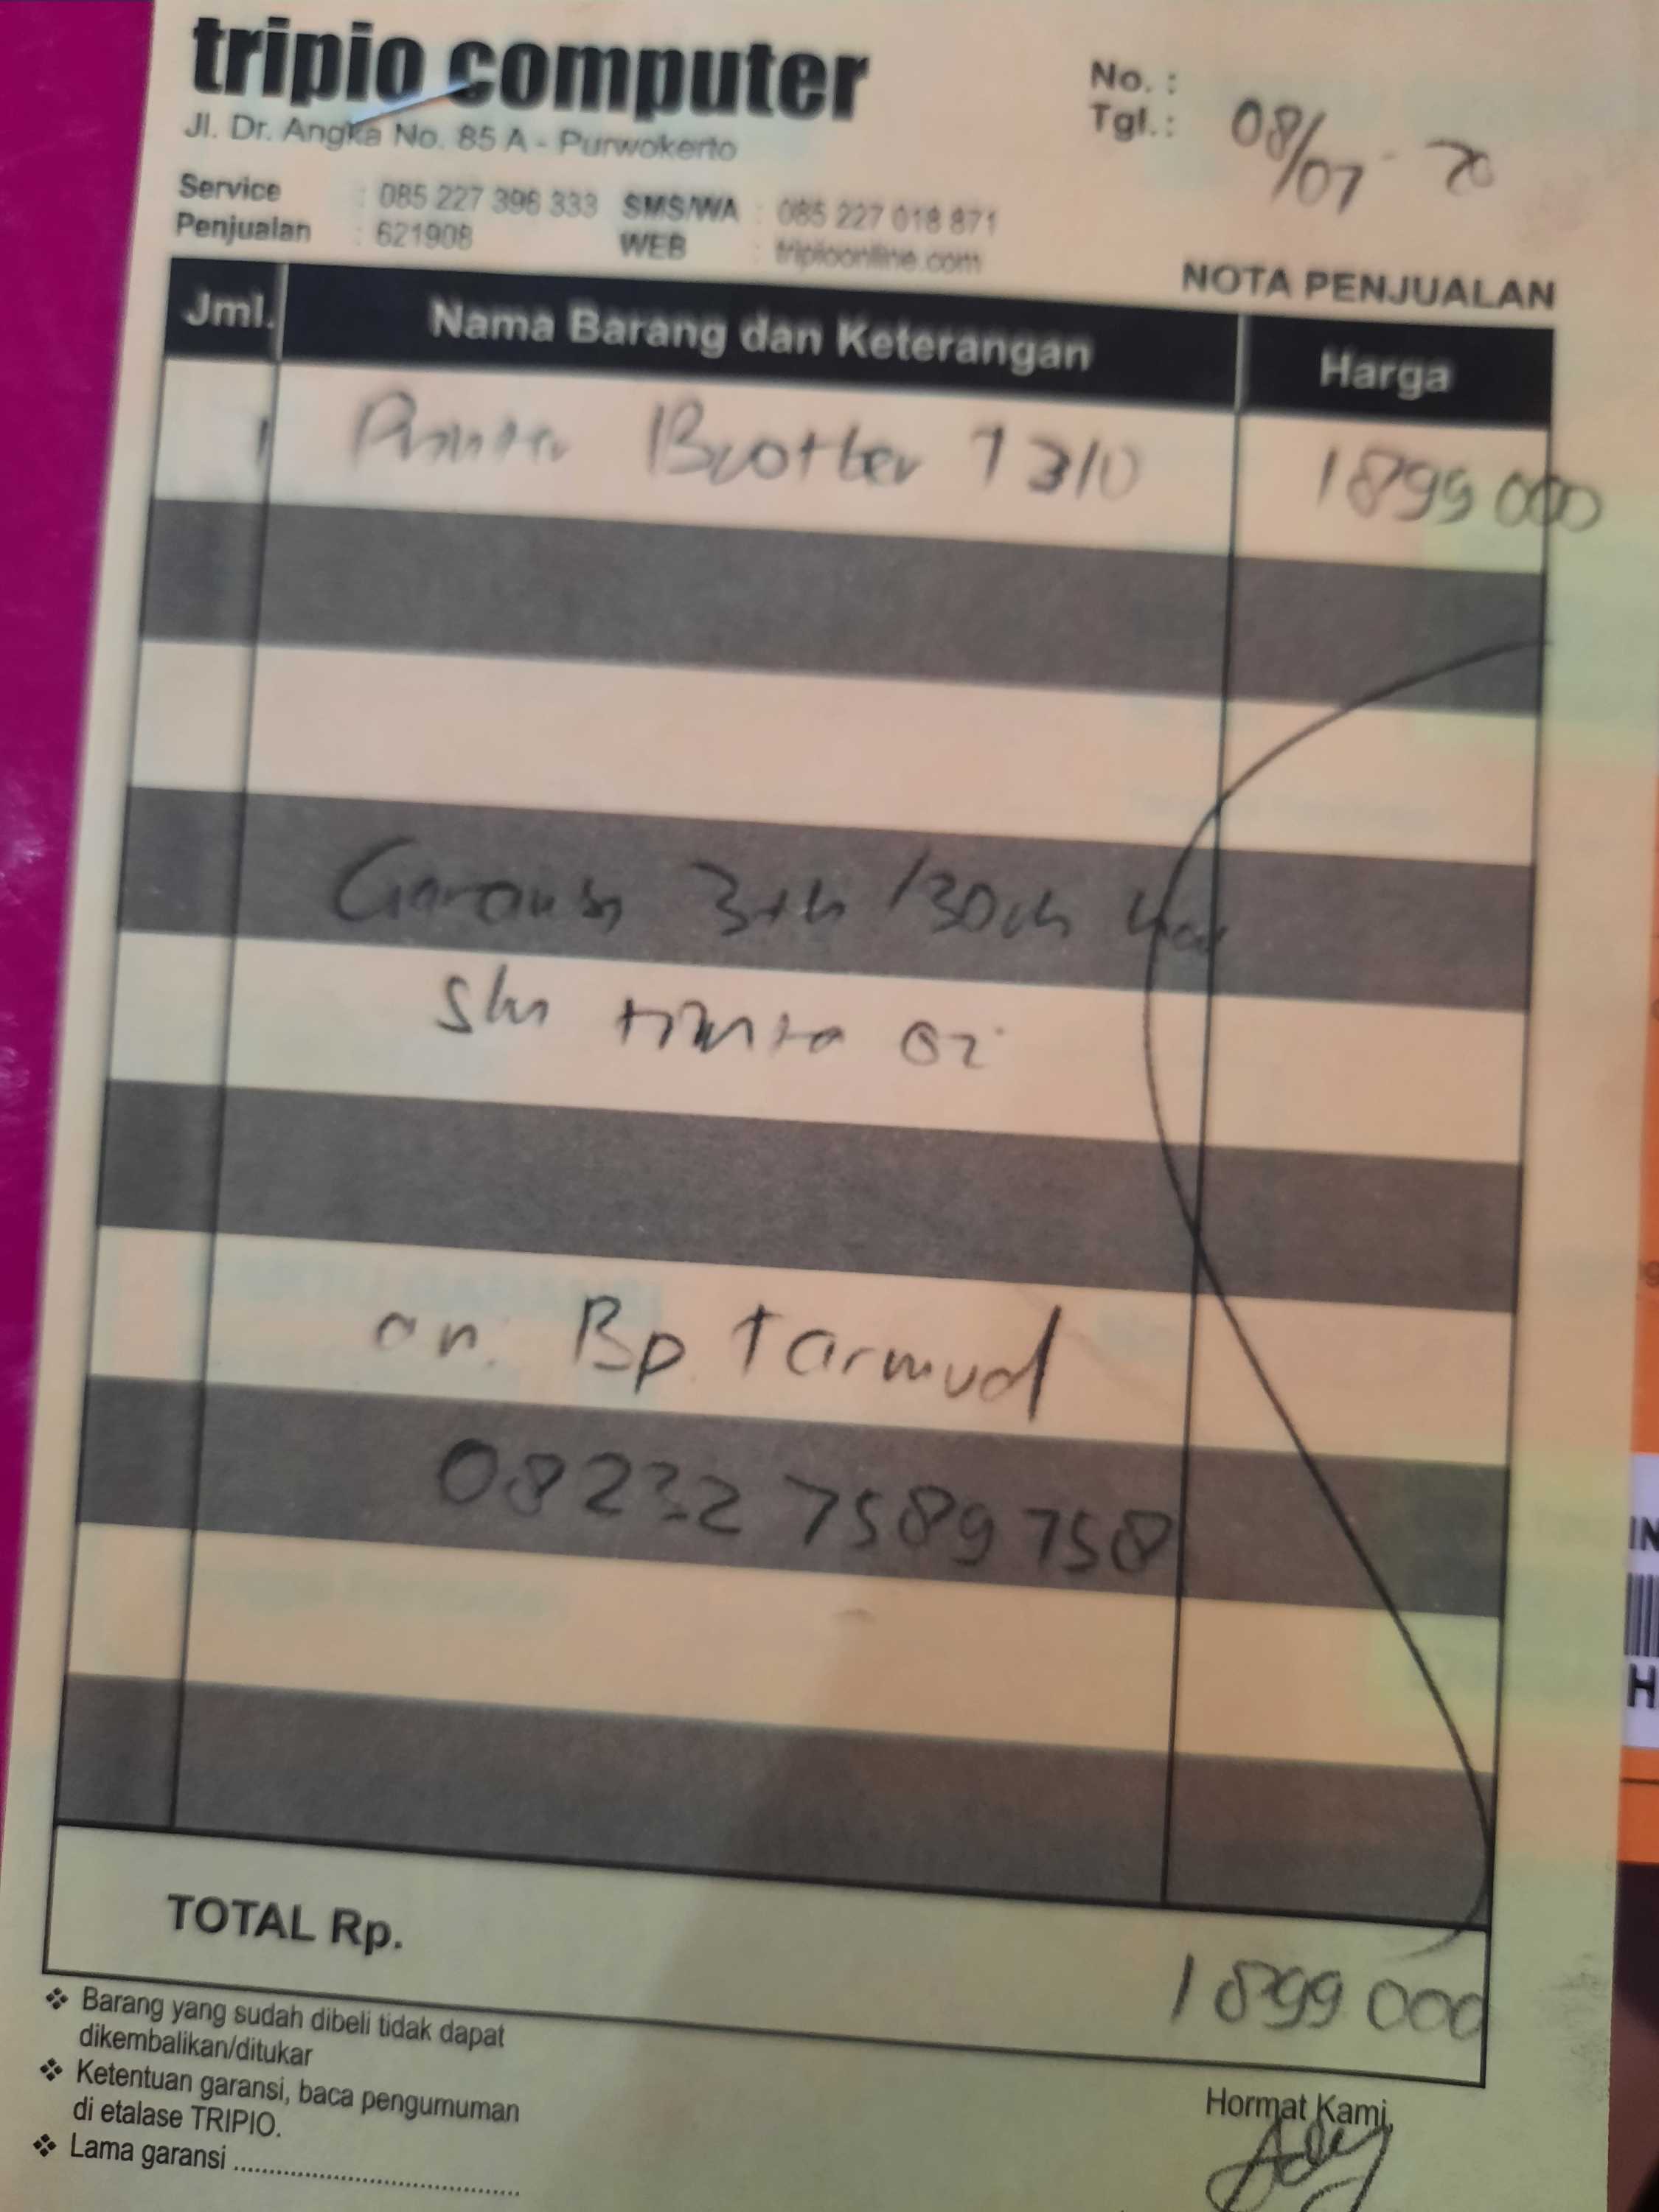 tripio computer
Jl. Dr. Angka No. 85 A - Purwokerto
No. :
Tgl. : 08/07 - 20
Service : 085 227 396 333 SMS/WA : 085 227 018 871
Penjualan : 621908 WEB : tripioonline.com
NOTA PENJUALAN
Jml. Nama Barang dan Keterangan Harga
1 Printer Brother T310 1899 000
Garansi 3th /30rb
tinta ori
an. Bp. Tarmud
08232 7589 758
TOTAL Rp. 1899 000
❖ Barang yang sudah dibeli tidak dapat
dikembalikan/ditukar
❖ Ketentuan garansi, baca pengumuman
di etalase TRIPIO.
❖ Lama garansi ........................................
Hormat Kami,
IN
H